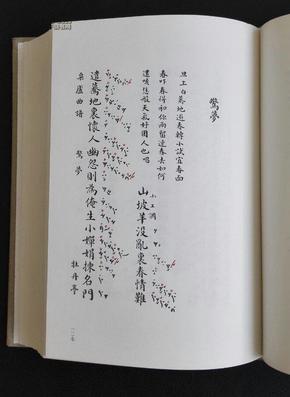 驚夢
旦上白驀地遊春轉小試宜春面
春吓春得和你兩留連春去如何
遣咳恁般天氣好困人也唱
小工調
山坡羊沒亂裏春情難
遣驀地裏懷人幽怨則為俺生小嬋娟揀名門
粟廬曲譜 驚夢 牡丹亭